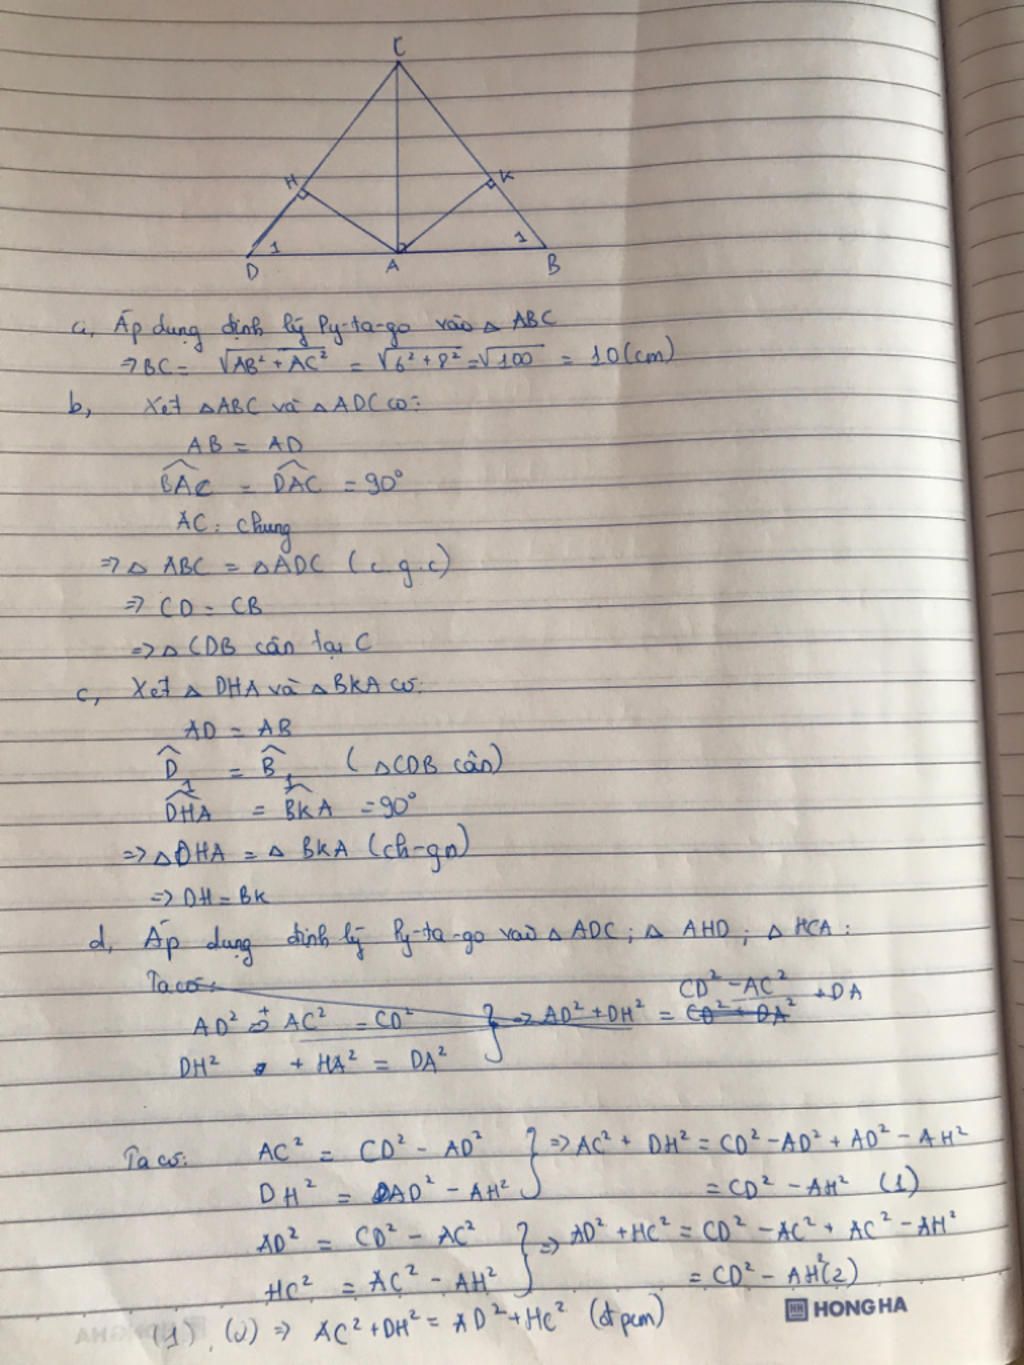 C
H
K
1
1
D
A
B
a, Áp dụng định lý Py-ta-go vào △ ABC
⇒ BC = √AB² + AC² = √6² + 8² = √100 = 10 (cm)
b, Xét △ABC và △ADC có:
AB = AD
BAC = DAC = 90°
AC: chung
⇒ △ ABC = △ADC (c.g.c)
⇒ CD = CB
⇒ △ CDB cân tại C
c, Xét △ DHA và △BKA có:
AD = AB
D₁ = B₁ (△CDB cân)
DHA = BKA = 90°
⇒ △DHA = △ BKA (ch-gn)
⇒ DH = BK
d, Áp dụng định lý Py-ta-go vào △ ADC; △ AHD; △ HCA:
Ta có:
CD² - AC² + DA
AD² + AC² = CD² } ⇒ AD² + DH² = CD² + DA²
DH² + HA² = DA²
Ta có: AC² = CD² - AD² } ⇒ AC² + DH² = CD² - AD² + AD² - AH²
DH² = AD² - AH² = CD² - AH² (1)
AD² = CD² - AC² } ⇒ AD² + HC² = CD² - AC² + AC² - AH²
HC² = AC² - AH² = CD² - AH² (2)
(1), (2) ⇒ AC² + DH² = AD² + HC² (đpcm)
HH HONG HA